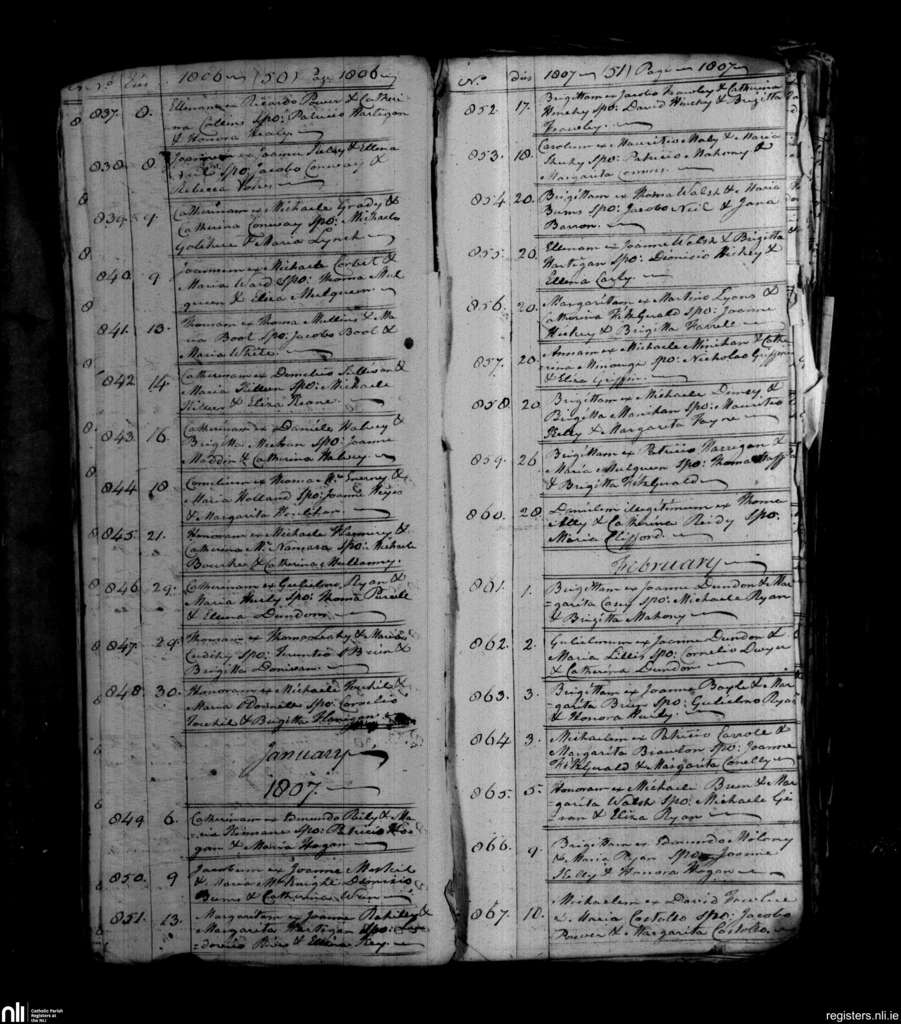 No. Dies 1806 (50) Page 1806
837. 8. Ellenam ex Ricardo Power & Catheri
na Collins Spo: Patricio Hartigan
& Honora Healy.
838 8. ex Joanne & Ellena
Spo: Jacobo Conway &
Rebecca
839. 9. Catherinam ex Michaele Grady &
Catherina Conway Spo: Michaele
& Maria Lynch
840 9 Joannem ex Michaele Corbet &
Maria Ward Spo: Thoma Mul
queen & Eliza Mulqueen
841. 13. Thomam ex Thoma Mullins & Ma
ria Boot Spo: Jacobo Boot &
Maria White.
842 14. Catherinam ex Cornelio Sullivan &
Maria Killeen Spo: Michaele
Killeen & Eliza Keane.
843. 16. Catherinam ex Daniele Halvey &
Brigitta Meehan Spo: Joanne
Madden & Catherina Halvey
844 18. Cornelium ex Thoma Mc Inerney &
Maria Holland Spo: Joanne Hayes
& Margarita Houlihan.
845. 21. Honoram ex Michaele Flannery &
Catherina Mc Namara Spo: Michaele
Bourke & Catherina Mullanny.
846 29. Catherinam ex Gulielmo Ryan &
Maria Hurly Spo: Thoma Purcell
& Elena Dundon.
847. 29. Thomam ex Thoma Leahy & Maria
Spo: Terentio O Brien &
Brigitta Donivan.
848. 30. Honoram ex Michaele &
Maria O Donnell Spo: Cornelio
& Brigitta Flanigan
January
1807.
849 6. Catherinam ex Edmundo Rily & Ma
ria Kinnane Spo: Patricio Ho
gan & Maria Hogan
850. 9 Jacobum ex Joanne
& Maria Mc Knight Dionisio
Burns & Catherina
851. 13. Margaritam ex Joanne &
Margarita Hartigan Spo:
& Ellena Hey.
No. Dies 1807 (51) Page 1807
852. 17. Brigittam ex Jacobo Frawley & Catherina
Spo: David & Brigitta
Frawley.
853. 18. Carolum ex Mauritio Haly & Maria
Spo: Patricio Mahony &
Margarita
854 20. Brigittam ex Thoma Walsh & Maria
Burns Spo: Jacobo Neil & Jana
Barron.
855. 20. Ellenam ex Joanne Walsh & Brigitta
Hartigan Spo: Dionisio Hickey &
Ellena Carly.
856. 20. Margaritam ex Martino Lyons &
Catherina FitzGerald Spo: Joanne
Hickey & Brigitta Farrell
857. 20. Annam ex Michaele Minihan & Cathe
rina Minouge Spo: Nicholao Griffin
& Eliza Griffin.
858 20 Brigittam ex Michaele &
Brigitta Manihan Spo: Mauritio
& Margarita
859. 26. Brigittam ex Patricio Harrigan &
Maria Mulqueen Spo: Thoma
& Brigitta FitzGerald
860. 28. Danielem illegitimum ex Thoma
Ally & Catherina Reidy Spo:
Maria Clifford.
February
861. 1. Brigittam ex Joanne Dundon & Mar
=garita Casey Spo: Michaele Ryan
& Brigitta Mahony
862. 2. Gulielmum ex Joanne Dundon &
Maria Lillis Spo: Cornelio Dwyer
& Catherina Dundon
863. 3. Brigittam ex Joanne Boyle & Mar
garita Spo: Gulielmo Ryan
& Honora
864 3. Michaelem ex Patricio Carroll &
Margarita Spo: Joanne
FitzGerald & Margarita Conelly
865. 5. Honoram ex Michaele Breen & Mar
garita Walsh Spo: Michaele Gé
ran & Eliza Ryan
866. 9. Brigittam ex Edmundo Molony
& Maria Ryan Spo: Joanne
Kelly & Honora Hogan
867. 10. Michaelem ex David
& Maria Costello Spo: Jacobo
Power & Margarita Costello.
nli
Catholic Parish
Registers at
the NLI
registers.nli.ie